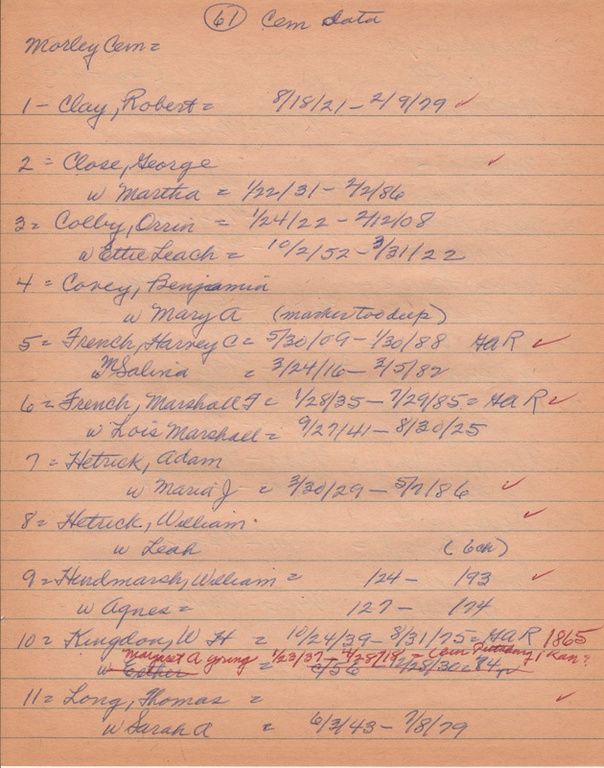 61 Cem Data
Morley Cem =
1 - Clay, Robert = 8/18/21 - 2/9/79 ✓
2 = Close, George ✓
w Martha = 1/22/31 - 2/2/86
3 = Colby, Orrin = 1/24/22 - 2/12/08
w Ettie Leach = 10/2/52 - 3/31/22
4 = Covey, Benjamin
w Mary A (marker too deep)
5 = French, Harvey C = 5/30/09 - 1/30/88 HAR ✓
w M Salina = 3/24/16 - 3/5/82
6 = French, Marshall F = 1/28/35 - 7/29/85 = HAR ✓
w Lois Marshall = 9/27/41 - 8/30/25
7 = Hetrick, Adam
w Maria J = 3/30/29 - 5/7/86 ✓
8 = Hetrick, William ✓
w Leah (6ch)
9 = Hindmarsh, William = 124 - 193 ✓
w Agnes = 127 - 174
10 = Kingdon, W H = 10/24/39 - 8/31/75 = HAR 1865
Margaret A young 1/23/37 - 4/28/19 = Cem Kan?
w Esther =
11 = Long, Thomas = ✓
w Sarah A = 6/3/43 - 7/8/79